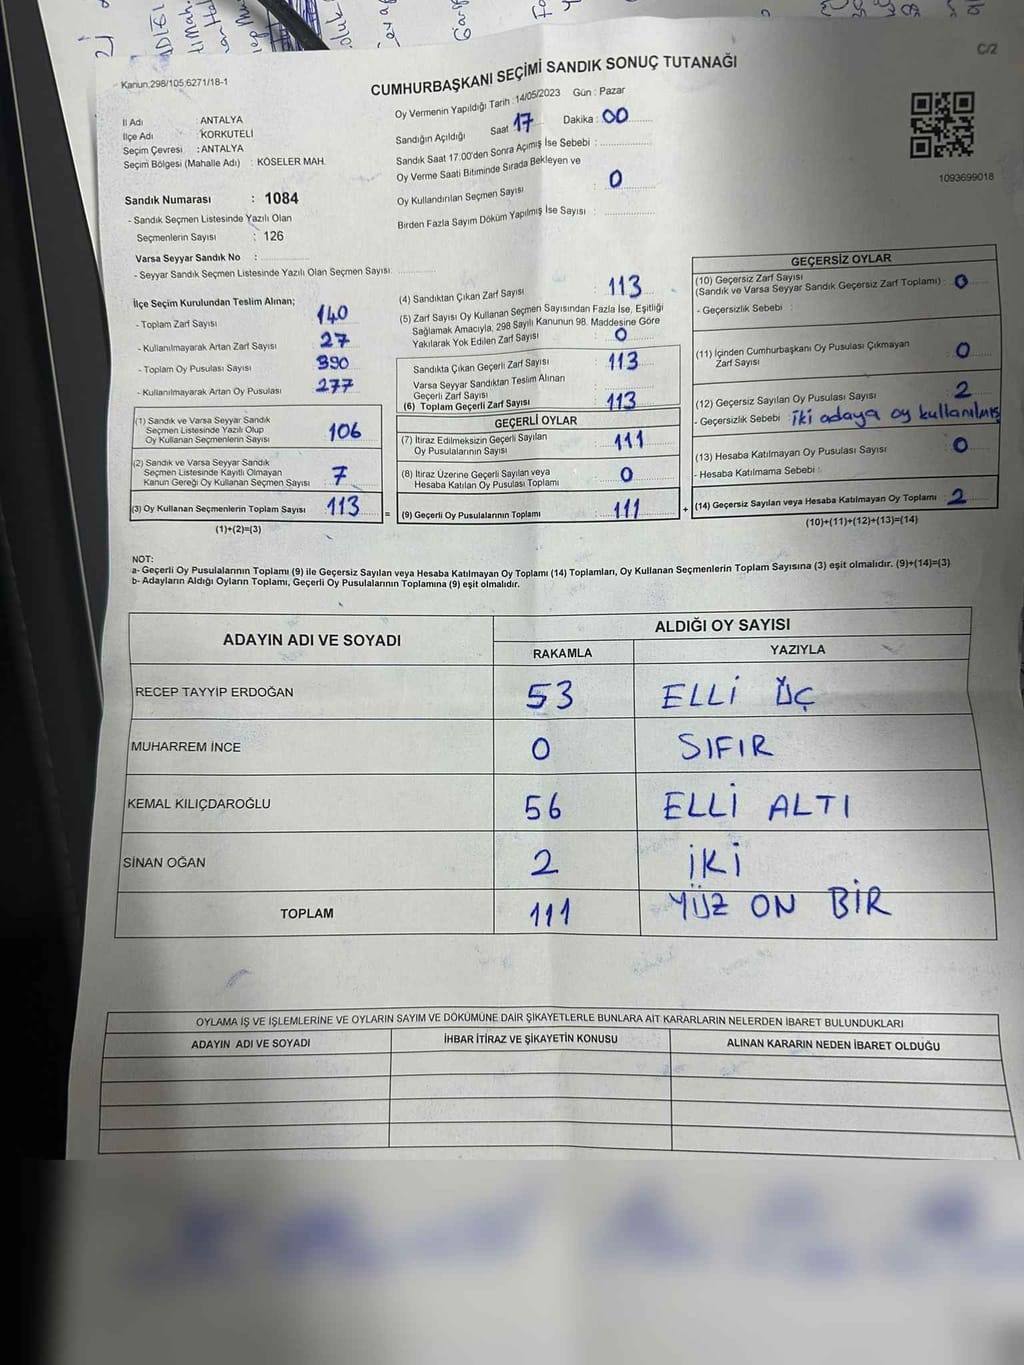 C/2
Kanun.298/105;6271/18-1
CUMHURBAŞKANI SEÇİMİ SANDIK SONUÇ TUTANAĞI
İl Adı : ANTALYA
İlçe Adı : KORKUTELİ
Seçim Çevresi : ANTALYA
Seçim Bölgesi (Mahalle Adı) : KÖSELER MAH.
Oy Vermenin Yapıldığı Tarih : 14/05/2023 Gün : Pazar
Sandığın Açıldığı Saat : 17 Dakika : 00
Sandık Saat 17:00'den Sonra Açımış İse Sebebi :
Oy Verme Saati Bitiminde Sırada Bekleyen ve
Oy Kullandırılan Seçmen Sayısı : 0
Birden Fazla Sayım Döküm Yapılmış İse Sayısı :
1093699018
Sandık Numarası : 1084
- Sandık Seçmen Listesinde Yazılı Olan
Seçmenlerin Sayısı : 126
Varsa Seyyar Sandık No :
- Seyyar Sandık Seçmen Listesinde Yazılı Olan Seçmen Sayısı:
İlçe Seçim Kurulundan Teslim Alınan;
- Toplam Zarf Sayısı 140
- Kullanılmayarak Artan Zarf Sayısı 27
- Toplam Oy Pusulası Sayısı 390
- Kullanılmayarak Artan Oy Pusulası 277
(1) Sandık ve Varsa Seyyar Sandık
Seçmen Listesinde Yazılı Olup
Oy Kullanan Seçmenlerin Sayısı 106
(2) Sandık ve Varsa Seyyar Sandık
Seçmen Listesinde Kayıtlı Olmayan
Kanun Gereği Oy Kullanan Seçmen Sayısı 7
(3) Oy Kullanan Seçmenlerin Toplam Sayısı 113
(1)+(2)=(3)
=
(4) Sandıktan Çıkan Zarf Sayısı : 113
(5) Zarf Sayısı Oy Kullanan Seçmen Sayısından Fazla İse, Eşitliği
Sağlamak Amacıyla, 298 Sayılı Kanunun 98. Maddesine Göre
Yakılarak Yok Edilen Zarf Sayısı : 0
Sandıkta Çıkan Geçerli Zarf Sayısı : 113
Varsa Seyyar Sandıktan Teslim Alınan
Geçerli Zarf Sayısı :
(6) Toplam Geçerli Zarf Sayısı : 113
GEÇERLİ OYLAR
(7) İtiraz Edilmeksizin Geçerli Sayılan
Oy Pusulalarının Sayısı : 111
(8) İtiraz Üzerine Geçerli Sayılan veya
Hesaba Katılan Oy Pusulası Toplamı : 0
(9) Geçerli Oy Pusulalarının Toplamı : 111
+
GEÇERSİZ OYLAR
(10) Geçersiz Zarf Sayısı
(Sandık ve Varsa Seyyar Sandık Geçersiz Zarf Toplamı) : 0
- Geçersizlik Sebebi :
(11) İçinden Cumhurbaşkanı Oy Pusulası Çıkmayan
Zarf Sayısı : 0
(12) Geçersiz Sayılan Oy Pusulası Sayısı : 2
- Geçersizlik Sebebi : iki adaya oy kullanılmış
(13) Hesaba Katılmayan Oy Pusulası Sayısı : 0
- Hesaba Katılmama Sebebi :
(14) Geçersiz Sayılan veya Hesaba Katılmayan Oy Toplamı : 2
(10)+(11)+(12)+(13)=(14)
NOT:
a- Geçerli Oy Pusulalarının Toplamı (9) ile Geçersiz Sayılan veya Hesaba Katılmayan Oy Toplamı (14) Toplamları, Oy Kullanan Seçmenlerin Toplam Sayısına (3) eşit olmalıdır. (9)+(14)=(3)
b- Adayların Aldığı Oyların Toplamı, Geçerli Oy Pusulalarının Toplamına (9) eşit olmalıdır.
ADAYIN ADI VE SOYADI
ALDIĞI OY SAYISI
RAKAMLA YAZIYLA
RECEP TAYYİP ERDOĞAN 53 ELLİ ÜÇ
MUHARREM İNCE 0 SIFIR
KEMAL KILIÇDAROĞLU 56 ELLİ ALTI
SİNAN OĞAN 2 İKİ
TOPLAM 111 YÜZ ON BİR
OYLAMA İŞ VE İŞLEMLERİNE VE OYLARIN SAYIM VE DÖKÜMÜNE DAİR ŞİKAYETLERLE BUNLARA AİT KARARLARIN NELERDEN İBARET BULUNDUKLARI
ADAYIN ADI VE SOYADI
İHBAR İTİRAZ VE ŞİKAYETİN KONUSU
ALINAN KARARIN NEDEN İBARET OLDUĞU